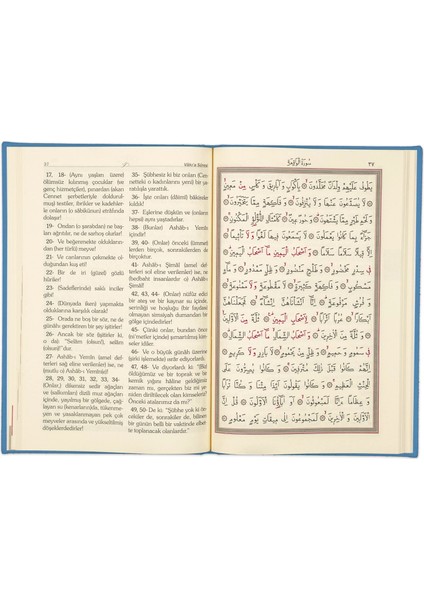 Vâkı'a Sûresi
17, 18- (Aynı yaşları üzre)
ölümsüz kılınmış çocuklar (ve
genç hizmetçileri), pınarlar(ı akan
Cennet şerbetleriyle doldurul-
muş) testiler, ibrikler ve kadehler-
le onların (o xâbikûnun) etrâfında
dolaşır.
19- Ondan (o şaraptan) ne baş-
ları ağrıtılır, ne de sarhoş olurlar!
20- Ve beğenmekte oldukların-
dan (her türlü) meyve!
21- Ve canlarının çekmekte ol-
duğundan kuş eti!
22- Bir de iri (güzel) gözlü
hûrîler!
23- (Sadeflerinde) saklı inciler
gibi!
24- (Dünyada iken) yapmakta
olduklarına karşılık olarak!
25- Orada ne boş bir söz, ne de
günâhı gerektiren bir şey işitirler!
26- Ancak bir söz (işitirler) ki,
o da): "Selâm (olsun!) selâm
(olsun)!" dur.
27- Ashâb-ı Yemîn (amel def-
terleri sağ eline verilenler) ise, ne
(mutlu o) Ashâb-ı Yemîndir!
28, 29, 30, 31, 32, 33, 34-
(Onlar,) dikensiz sedir ağaçları
ve (salkımları) dizili muz ağaçları
içinde, yayılmış bir gölgede, çağla-
yan su (kenarların)da, tükenme-
yen ve yasaklanmayan pek çok
meyveler arasında ve yükseltilmiş
döşeklerdedirler!
35- Şübhesiz ki biz onları (Cen-
netteki o kadınları) yeni bir yara-
tışla yarattık.
36- İşte onları (dâimî) bâkireler
kıldık!
37- Eşlerine düşkün ve (onlarla)
38- (Bunlar) Ashâb-ı Yemîn
içindir!
39, 40- (Onlar) önceki (ümmet)
lerden birçoğu, sonrakilerden de
birçoktur.
41- Ashâb-ı Şimâl (amel def-
terleri sol eline verilenler) ise, ne
Şimâl!
42, 43, 44- (Onlar) nüfûz edici
bir ateş ve bir kaynar su içinde,
gölge içindedirler!
45- Çünki onlar, bundan önce
(ni'metler içinde) şımartılmış kim-
seler idiler.
46- Ve o büyük günâhı (üzere)
(şirki işlemekte) ısrâr ediyorlardı.
47, 48- Ve diyorlardı ki: "(Biz)
öldüğümüz ve bir toprakla bir
kemik yığını hâline geldiğimiz
zaman mı, gerçekten biz mi ye-
niden diriltilecek olan kimseleriz!
Önceki atalarımız da mı?"
49, 50- De ki: "Şübhe yok ki ön-
cekiler de, sonrakiler de, bilinen
bir günün belli bir vaktinde elbet-
te toplanacak olanlardır."
٣٧
سُورَةُ الْوَاقِعَةِ
يَطُوفُ عَلَيْهِمْ وِلْدَانٌ مُخَلَّدُونَ بِأَكْوَابٍ وَأَبَارِيقَ وَكَأْسٍ مِنْ مَعِينٍ
لَا يُصَدَّعُونَ عَنْهَا وَلَا يُنْزِفُونَ وَفَاكِهَةٍ مِمَّا يَتَخَيَّرُونَ
وَلَحْمِ طَيْرٍ مِمَّا يَشْتَهُونَ وَحُورٌ عِينٌ كَأَمْثَالِ اللُّؤْلُؤِ الْمَكْنُونِ
جَزَاءً بِمَا كَانُوا يَعْمَلُونَ لَا يَسْمَعُونَ فِيهَا لَغْوًا وَلَا تَأْثِيمًا
إِلَّا قِيلًا سَلَامًا سَلَامًا وَأَصْحَابُ الْيَمِينِ مَا أَصْحَابُ الْيَمِينِ
فِي سِدْرٍ مَخْضُودٍ وَطَلْحٍ مَنْضُودٍ وَظِلٍّ مَمْدُودٍ وَمَاءٍ
مَسْكُوبٍ وَفَاكِهَةٍ كَثِيرَةٍ لَا مَقْطُوعَةٍ وَلَا مَمْنُوعَةٍ
وَفُرُشٍ مَرْفُوعَةٍ إِنَّا أَنْشَأْنَاهُنَّ إِنْشَاءً فَجَعَلْنَاهُنَّ
أَبْكَارًا عُرُبًا أَتْرَابًا لِأَصْحَابِ الْيَمِينِ ثُلَّةٌ مِنَ الْأَوَّلِينَ
وَثُلَّةٌ مِنَ الْآخِرِينَ وَأَصْحَابُ الشِّمَالِ مَا أَصْحَابُ الشِّمَالِ
فِي سَمُومٍ وَحَمِيمٍ وَظِلٍّ مِنْ يَحْمُومٍ لَا بَارِدٍ وَلَا كَرِيمٍ
إِنَّهُمْ كَانُوا قَبْلَ ذَلِكَ مُتْرَفِينَ وَكَانُوا يُصِرُّونَ عَلَى الْحِنْثِ
الْعَظِيمِ وَكَانُوا يَقُولُونَ أَئِذَا مِتْنَا وَكُنَّا تُرَابًا
وَعِظَامًا أَإِنَّا لَمَبْعُوثُونَ أَوَآبَاؤُنَا الْأَوَّلُونَ قُلْ إِنَّ
الْأَوَّلِينَ وَالْآخِرِينَ لَمَجْمُوعُونَ إِلَى مِيقَاتِ يَوْمٍ مَعْلُومٍ